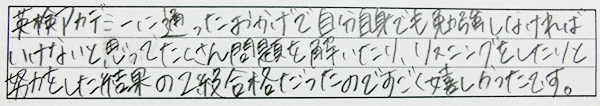 英検アカデミーに通ったおかげで自分自身でも勉強しなければ
いけないと思ってたくさん問題を解いたり、リスニングをしたりと
努力をした結果の2級合格だったのですごく嬉しかったです。